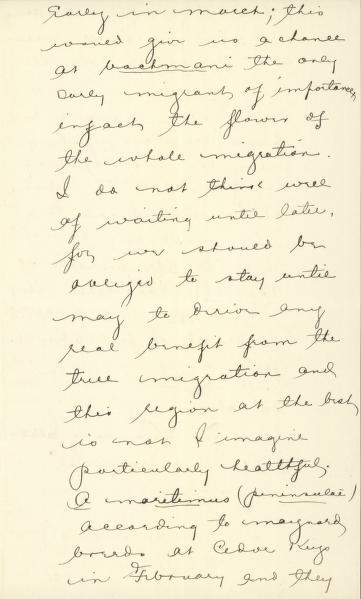 Early in march; this
would give us a chance
at bachmani the only
early migrant of importance,
infact the flower of
the whole migration.
I do not think well
of waiting until later,
for we should be
obliged to stay until
may to derive any
real benefit from the
true migration and
this region at the best
is not I imagine
particularly healthful.
A maritimus (peninsulae)
according to maynard
breeds at Cedar Keys
in February and they